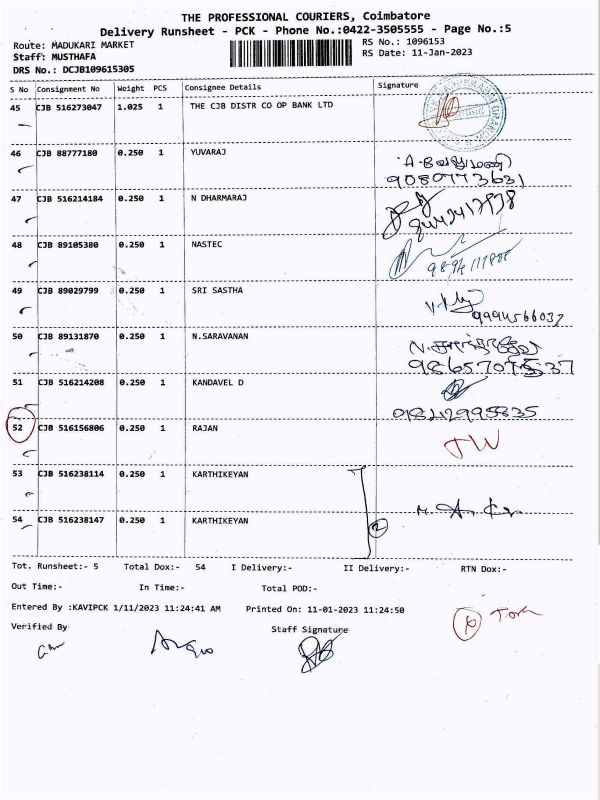 THE PROFESSIONAL COURIERS, Coimbatore
Delivery Runsheet - PCK - Phone No.:0422-3505555 - Page No.:5
Route: MADUKARI MARKET
Staff: MUSTHAFA
DRS No.: DCJB109615305
RS No.: 1096153
RS Date: 11-Jan-2023
S No Consignment No Weight PCS Consignee Details Signature
45 CJB 516273047 1.025 1 THE CJB DISTR CO OP BANK LTD
46 CJB 88777180 0.250 1 YUVARAJ
9080773631
47 CJB 516214184 0.250 1 N DHARMARAJ
48 CJB 89105380 0.250 1 NASTEC
49 CJB 89029799 0.250 1 SRI SASTHA
9994566037
50 CJB 89131870 0.250 1 N.SARAVANAN
51 CJB 516214208 0.250 1 KANDAVEL D
52 CJB 516156806 0.250 1 RAJAN
53 CJB 516238114 0.250 1 KARTHIKEYAN
2
54 CJB 516238147 0.250 1 KARTHIKEYAN
Tot. Runsheet:- 5 Total Dox:- 54 I Delivery:- II Delivery:- RTN Dox:-
Out Time:- In Time:- Total POD:-
Entered By :KAVIPCK 1/11/2023 11:24:41 AM Printed On: 11-01-2023 11:24:50
Verified By Staff Signature